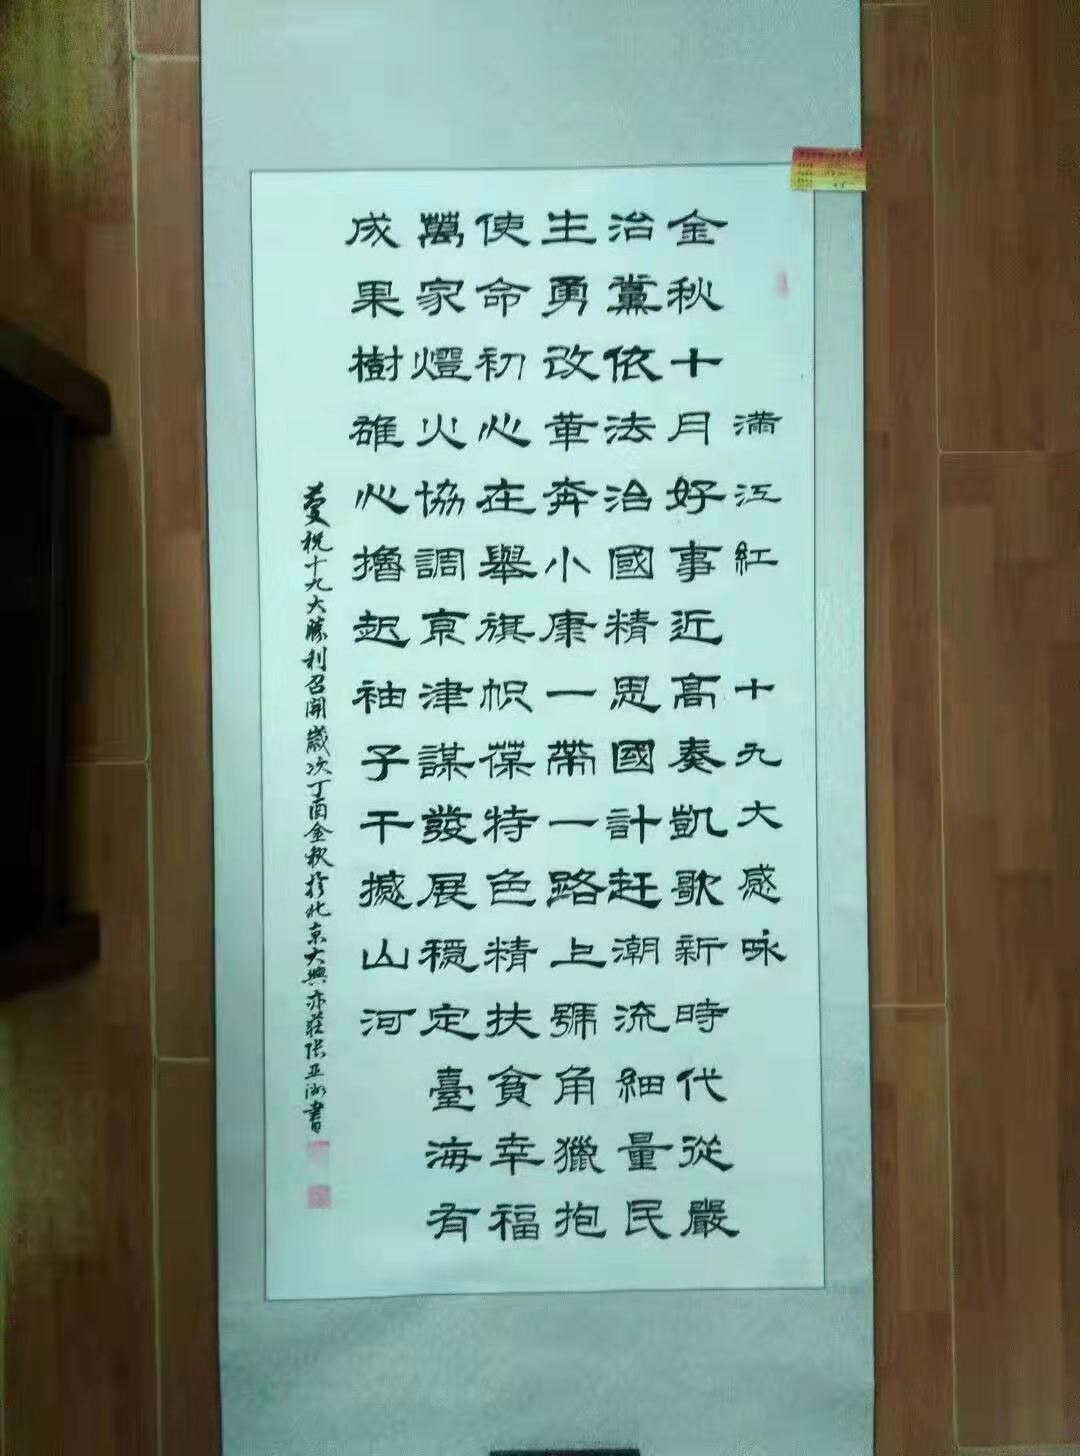 滿江紅 十九大感咏
金秋十月好事近高奏凱歌新時代從嚴
治黨依法治國精思國計赶潮流細量民
生勇改革奔小康一帶一路上號角獵抱
使命初心在舉旗帜葆特色精扶貧幸福
萬家燈火協調京津謀發展穩定臺海有
成果樹雄心擼起袖子干撼山河
慶祝十九大勝利召開歲次丁酉金秋於北京大興亦莊張亚洲書